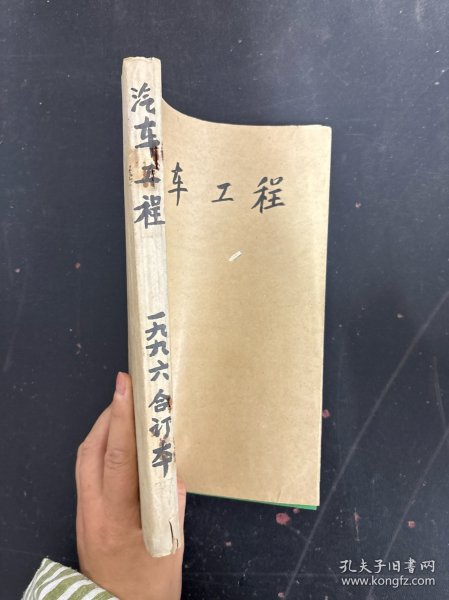 汽车工程
一九九六合订本
车工程
孔夫子旧书网
www.kongfz.com